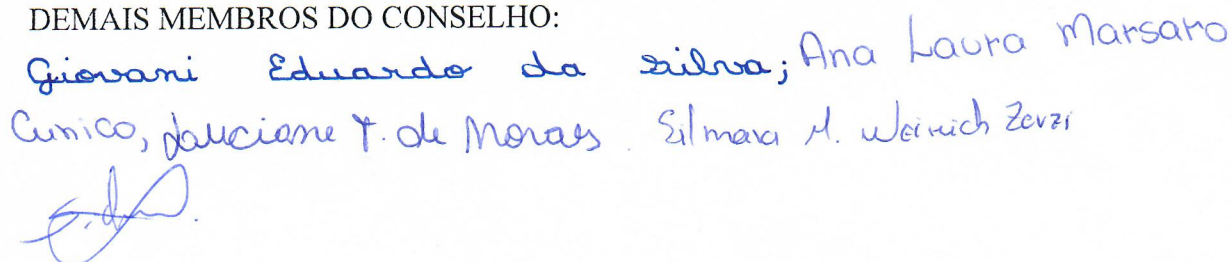 DEMAIS MEMBROS DO CONSELHO:
Giovani Eduardo da Silva; Ana Laura Marsaro
Cunico, Jauciane T. de Moraes. Silmara M. Weirich Zerzi